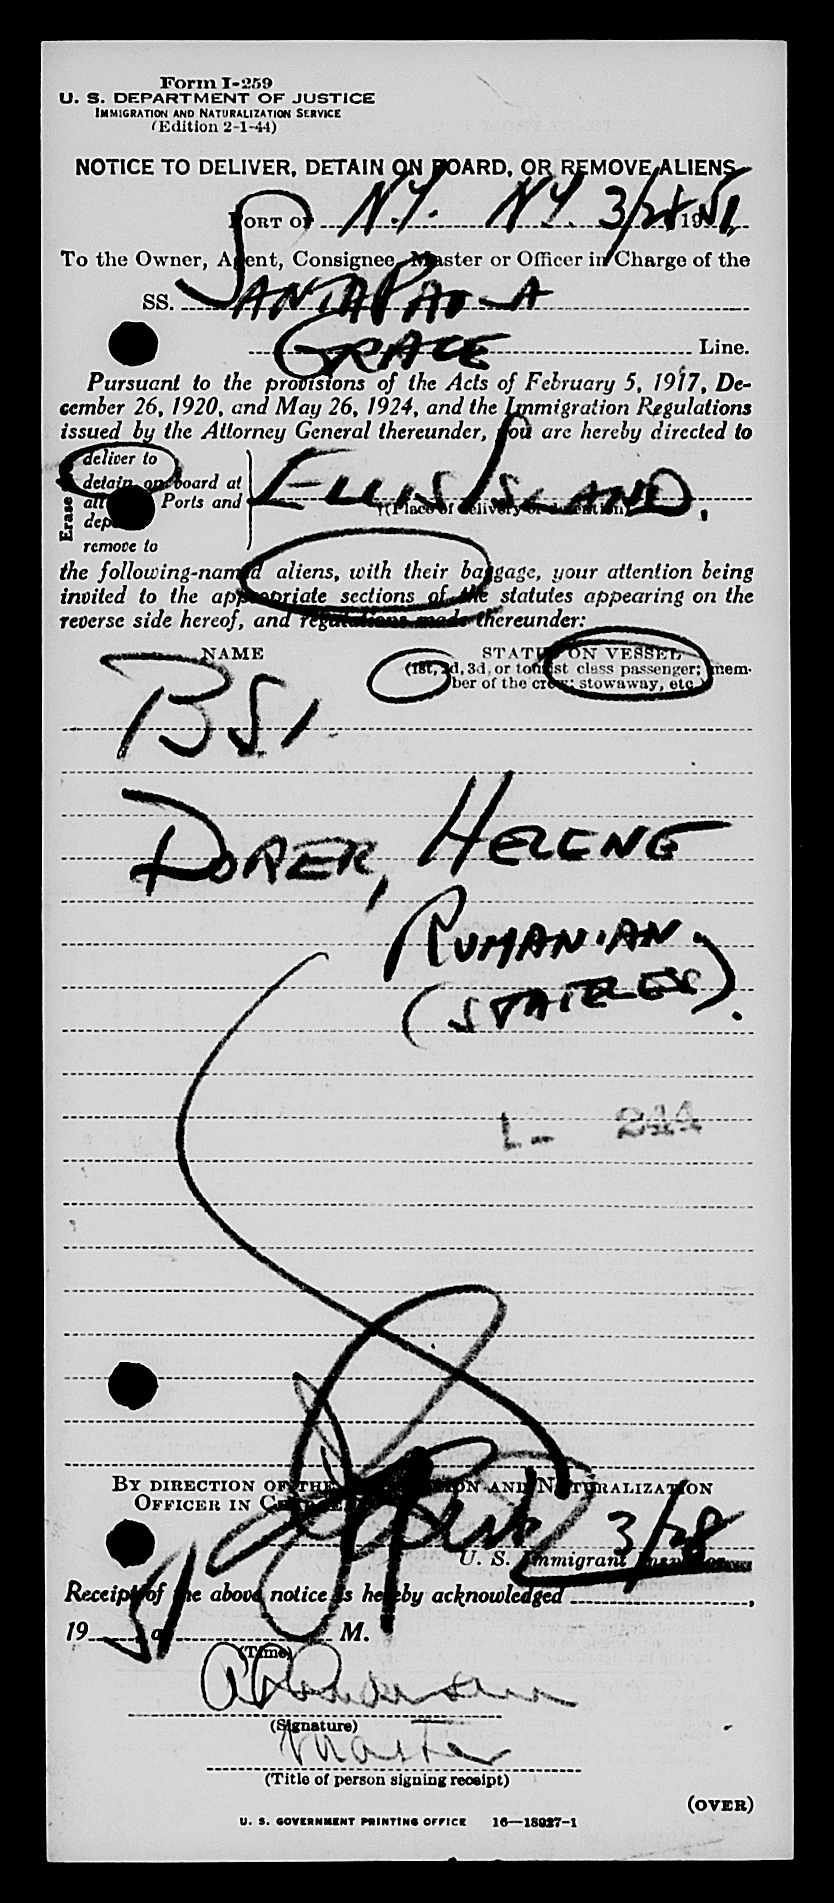 Form I-259
U. S. DEPARTMENT OF JUSTICE
IMMIGRATION AND NATURALIZATION SERVICE
(Edition 2-1-44)
NOTICE TO DELIVER, DETAIN ON BOARD, OR REMOVE ALIENS
PORT OF N.Y. N.Y. 3/28 1951
To the Owner, Agent, Consignee, Master or Officer in Charge of the
SS. SANTA PAULA
GRACE Line.
Pursuant to the provisions of the Acts of February 5, 1917, De-
cember 26, 1920, and May 26, 1924, and the Immigration Regulations
issued by the Attorney General thereunder, you are hereby directed to
deliver to
detain on board at
all Ports and
remove to
Erase
ELLIS ISLAND.
†(Place of delivery or detention)
the following-named aliens, with their baggage, your attention being
invited to the appropriate sections of the statutes appearing on the
reverse side hereof, and regulations made thereunder:
NAME STATUS ON VESSEL
(1st, 2d, 3d, or tourist class passenger; mem-
ber of the crew; stowaway, etc.)
BSI.
DORER, HELENE
RUMANIAN.
(STATELESS).
L- 244
BY DIRECTION OF THE IMMIGRATION AND NATURALIZATION
OFFICER IN CHARGE
3/28
U. S. Immigrant Inspector
Receipt of the above notice is hereby acknowledged
19 51 at M.
(Time)
(Signature)
Master
(Title of person signing receipt)
(OVER)
U. S. GOVERNMENT PRINTING OFFICE 16—18927-1